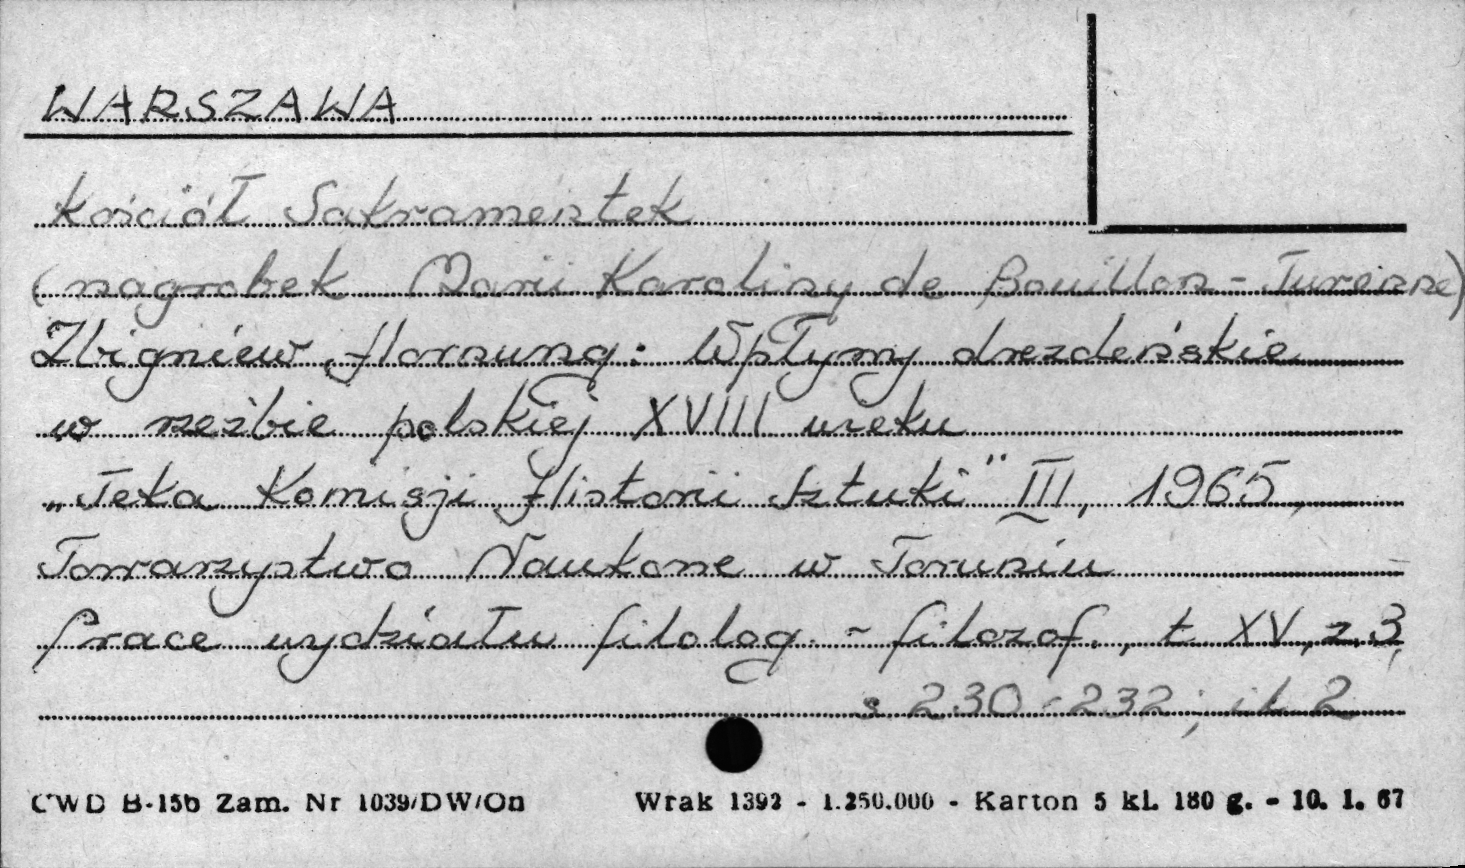 WARSZAWA
Kościół Sakramentek
(nagrobek Marii Karoliny de Bouillon - Turenne)
Zbigniew Hornung: Wpływy drezdeńskie
w rzeźbie polskiej XVIII wieku
„Teka Komisji Historii Sztuki" III, 1965,
Towarzystwo Naukowe w Toruniu
Prace wydziału filolog. - filozof., t XV, z. 3,
s. 230 - 232; il. 2
CWD B-15b Zam. Nr 1039/DW/On Wrak 1392 - 1.250.000 - Karton 5 kl. 180 g. - 10. I. 67